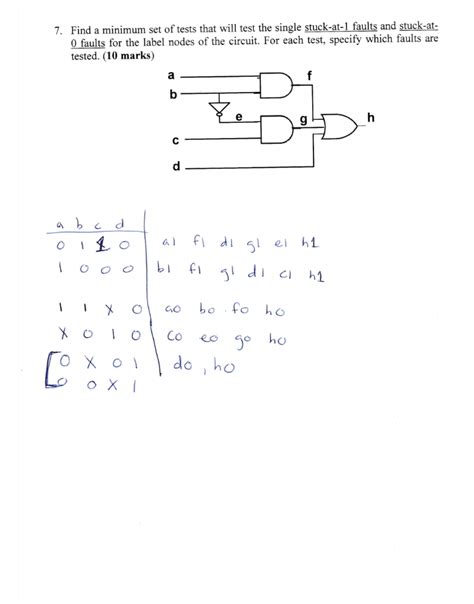 7. Find a minimum set of tests that will test the single stuck-at-1 faults and stuck-at-
0 faults for the label nodes of the circuit. For each test, specify which faults are
tested. (10 marks)
a f
b
e g h
c
d
a b c d
0 1 1 0 a1 f1 d1 g1 e1 h1
1 0 0 0 b1 f1 g1 d1 c1 h1
1 1 X 0 a0 b0 . f0 h0
X 0 1 0 c0 e0 g0 h0
0 X 0 1 d0, h0
0 0 X 1